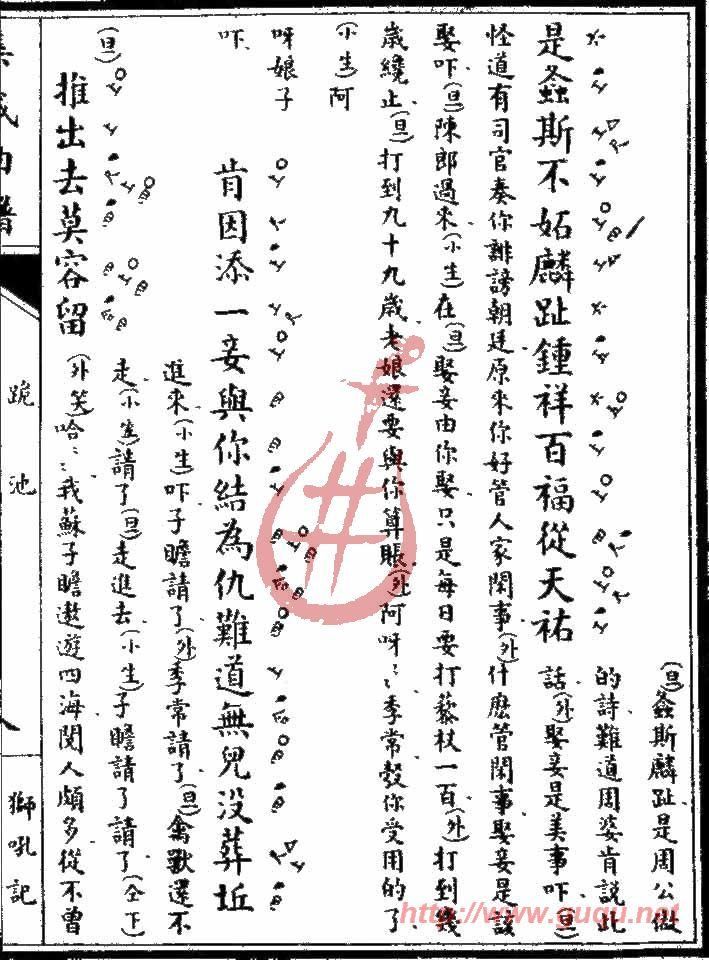 是螽斯不妬麟趾鍾祥百福從天祐
(旦)螽斯麟趾是周公做
的詩難道周婆肯說此
話(外)娶妾是美事吓(旦)
怪道有司官奏你誹謗朝廷原來你好管人家閒事(外)什麽管閒事娶妾是該
娶吓(旦)陳郎過來(小生)在(旦)娶妾由你娶只是每日要打藜杖一百(外)打到幾
歲纔止(旦)打到九十九歲老娘還要與你算賬(外)阿呀ミ季常彀你受用的了
(小生)阿
呀娘子
吓
肯因添一妾與你結為仇難道無兒没葬坵
(旦)推出去莫容留
進來(小生)吓子瞻請了(外)季常請了(旦)禽獸還不
走(小生)請了(旦)走進去(小生)子瞻請了請了(仝下)
(外笑)哈ミ我蘇子瞻遨遊四海閱人頗多從不曾
跪池
獅吼記
http://www.guqu.net